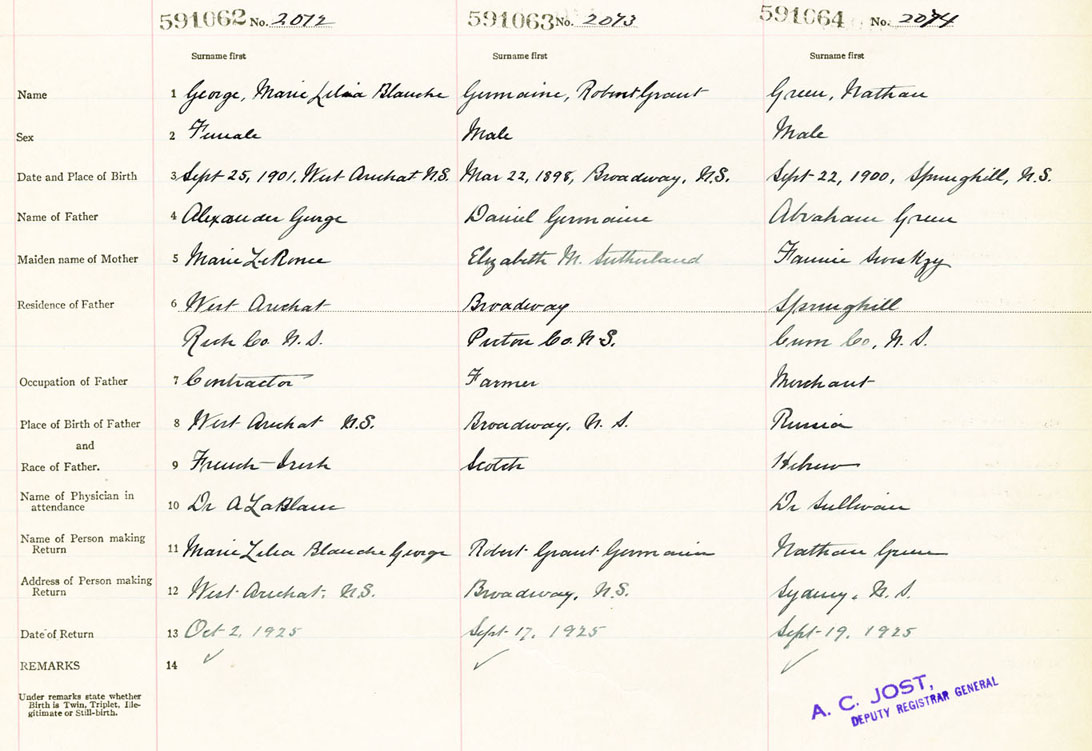 591062 No. 2072 591063 No. 2073 591064 No. 2074
Surname first Surname first Surname first
Name 1 George, Marie Lelia Blanche Germaine, Robert Grant Green, Nathan
Sex 2 Female Male Male
Date and Place of Birth 3 Sept 25, 1901, West Arichat N.S. Mar 22, 1898, Broadway, N.S. Sept 22, 1900, Springhill, N.S.
Name of Father 4 Alexander George Daniel Germaine Abraham Green
Maiden name of Mother 5 Marie Elizabeth M. Sutherland Fannie
Residence of Father 6 West Arichat Broadway Springhill
Rich Co. N.S. Pictou Co. N.S. Cum Co, N.S.
Occupation of Father 7 Contractor Farmer Merchant
Place of Birth of Father 8 West Arichat N.S. Broadway, N.S. Russia
and
Race of Father. 9 French-Irish Scotch Hebrew
Name of Physician in
attendance 10 Dr A LaBlanc Dr Sullivan
Name of Person making
Return 11 Marie Lelia Blanche George Robert Grant Germaine Nathan Green
Address of Person making
Return 12 West Arichat, N.S. Broadway, N.S. Sydney, N.S.
Date of Return 13 Oct 2, 1925 Sept 17, 1925 Sept 19, 1925
REMARKS 14 ✓ ✓ ✓
Under remarks state whether
Birth is Twin, Triplet, Ille-
gitimate or Still-birth.
A. C. JOST,
DEPUTY REGISTRAR GENERAL